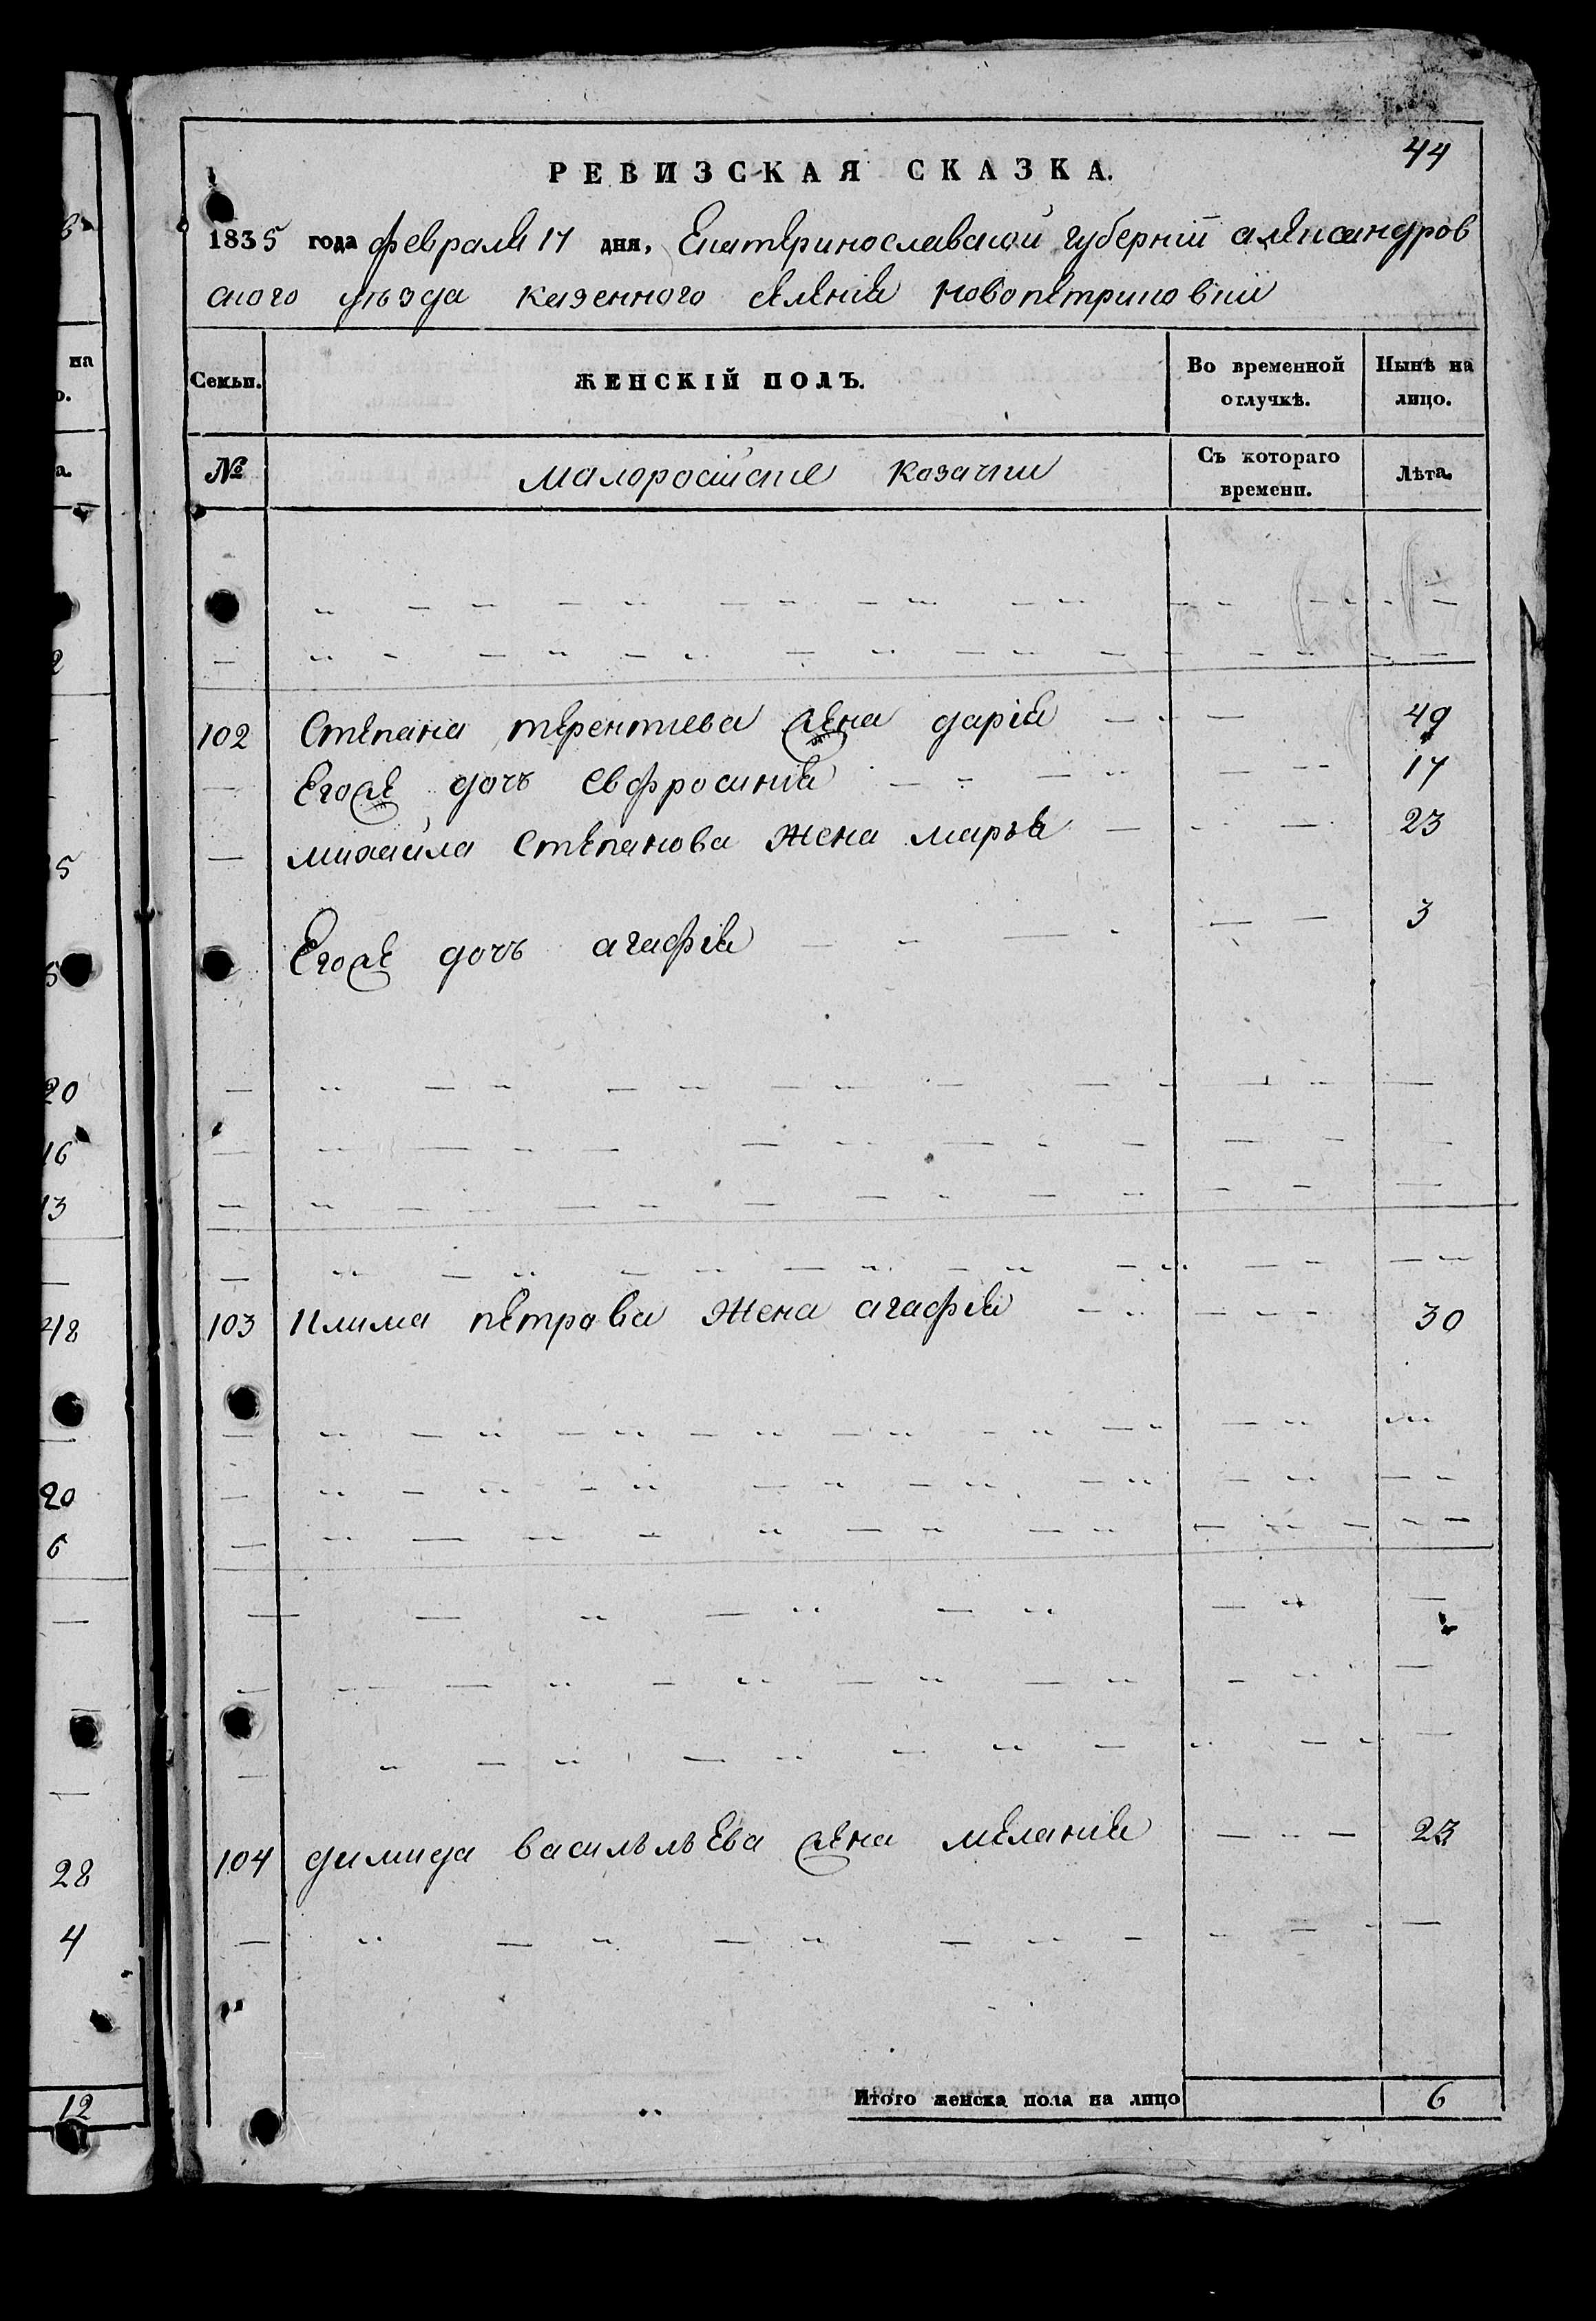 44
РЕВИЗСКАЯ СКАЗКА.
1835 года февраля 17 дня, Екатеринославской губернiи александров
ского уѣзда казенного селенiя новопетриковки
Семьи. ЖЕНСКIЙ ПОЛЪ. Во временной отлучкѣ. Нынѣ на лицо.
№ малоросiйскiе козачки Съ котораго времени. Лѣта.
102 Степана терентиева жена дарiя 49
Егоже дочъ евфросинiя 17
михайла степанова жена маръя 23
Егоже дочъ агафiя 3
103 климa петрова жена агафiя 30
104 димида василълъева жена меланiя 23
Итого женска пола на лицо 6
на
о.
а.
2
5
5
20
16
13
48
20
6
28
4
12